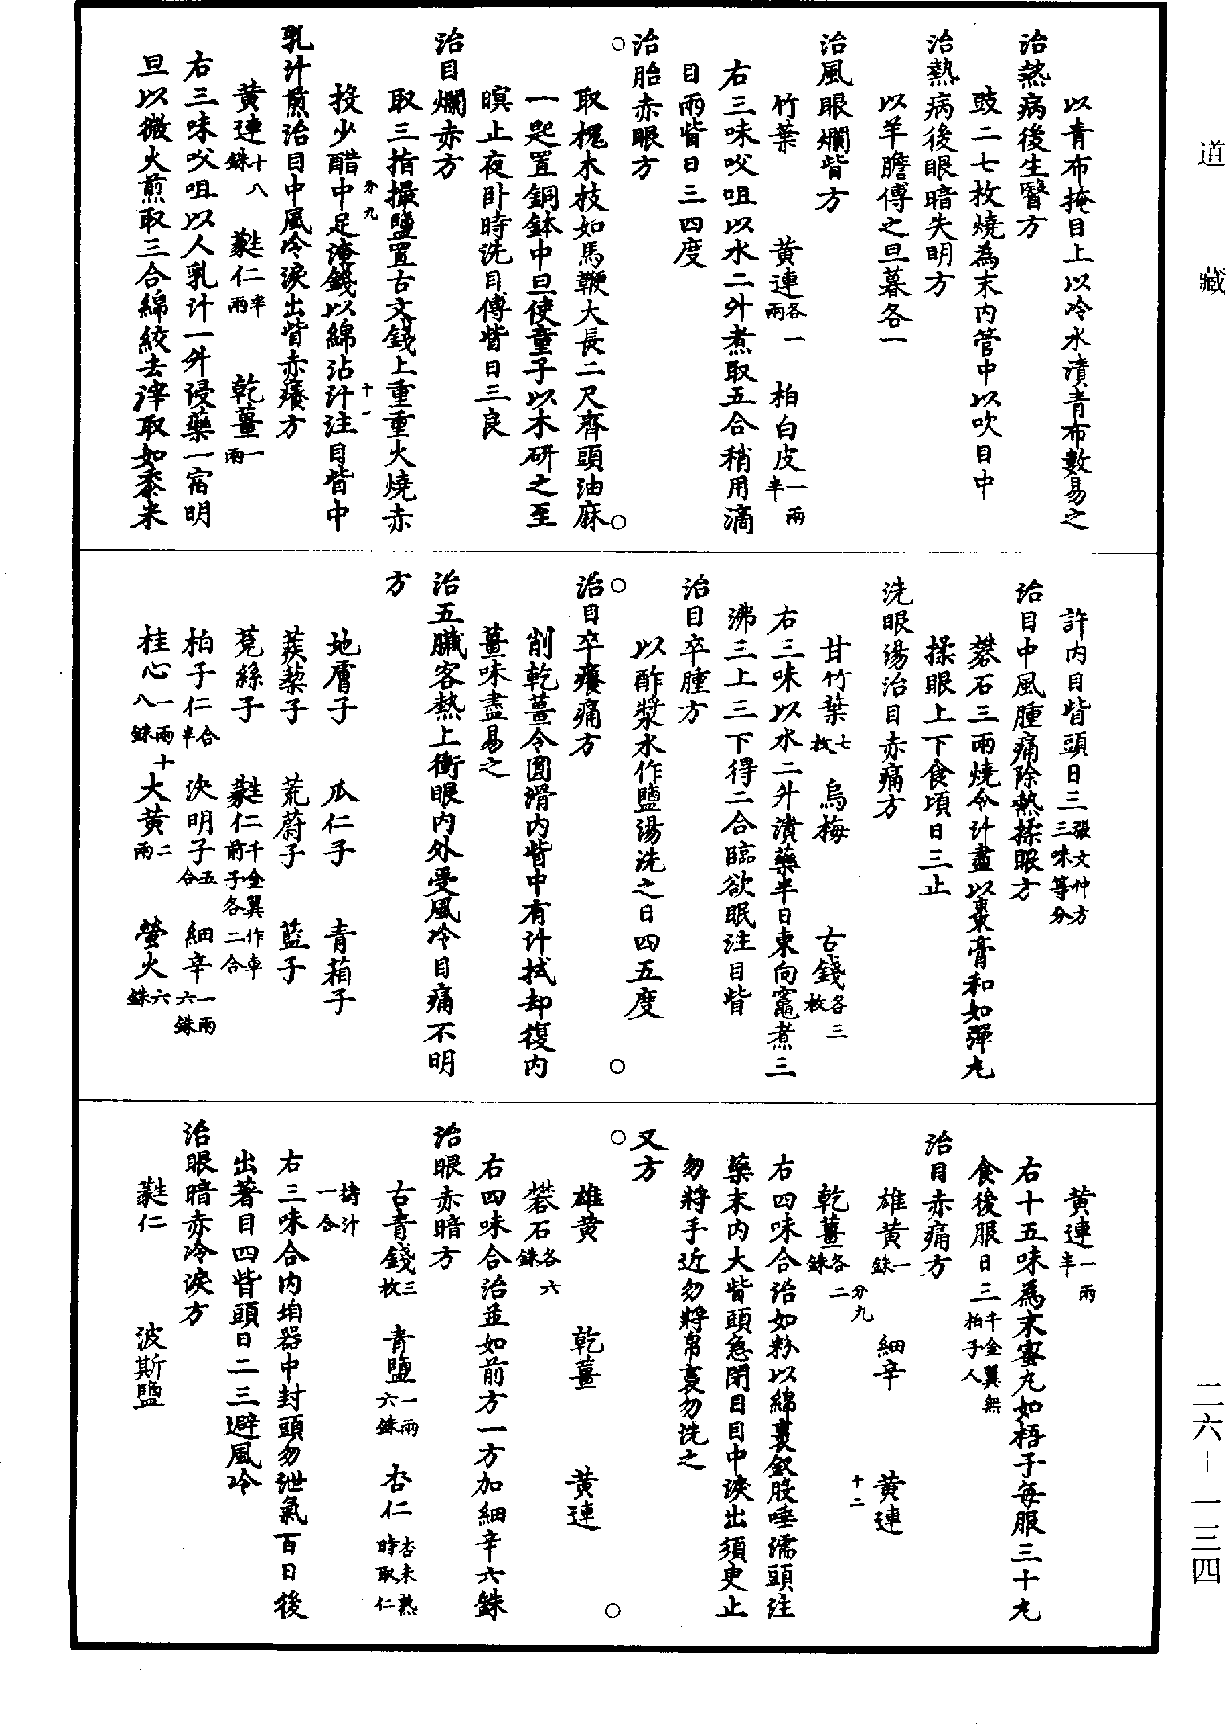 道藏
以青布掩目上以冷水漬青布數易之
治熱病後生翳方
豉二七枚燒為末內管中以吹目中
治熱病後眼暗失明方
以羊膽傅之旦暮各一
治風眼爛眥方
竹葉 黃連各一兩 柏白皮一兩半
右三味㕮咀以水二升煮取五合稍用滴
目兩眥日三四度
治胎赤眼方
取槐木枝如馬鞭大長二尺齊頭油麻
一匙置銅鉢中旦使童子以木研之至
瞑止夜卧時洗目傅眥日三良
治目爛赤方
取三指撮鹽置古文錢上重重火燒赤
投少醋中足淹錢以綿沾汁注目眥中
分九 十一
乳汁煎治目中風冷淚出眥赤癢方
黃連十八銖 蕤仁二兩半 乾薑一兩
右三味㕮咀以人乳汁一升浸藥一宿明
旦以微火煎取三合綿絞去滓取如黍米
許內目眥頭日三張文仲方三味等分
治目中風腫痛除熱揉眼方
礬石三兩燒令汁盡以棗膏和如彈丸
揉眼上下食頃日三止
洗眼湯治目赤痛方
甘竹葉七枚 烏梅 古錢各三枚
右三味以水二升漬藥半日東向竈煮三
沸三上三下得二合臨欲眠注目眥
治目卒腫方
以酢漿水作鹽湯洗之日四五度
治目卒癢痛方
削乾薑令圓滑內眥中有汁拭却復內
薑味盡易之
治五臟客熱上衝眼內外受風冷目痛不明
方
地膚子 瓜仁子 青葙子
蒺藜子 茺蔚子 藍子
菟絲子 蕤仁二千金翼作車前子各二合
柏子仁合半 決明子五合 細辛一兩六銖
桂心一兩十八銖 大黃二兩 螢火六銖
黃連一兩半
右十五味為末蜜丸如梧子每服三十丸
食後服日三千金翼無柏子人
治目赤痛方
雄黃一銖 細辛 黃連
乾薑各二銖
分九 十二
右四味合治如粉以綿裹釵股唾濡頭注
藥末內大眥頭急閉目目中淚出須臾止
勿將手近勿將帛裹勿洗之
又方
雄黃 乾薑 黃連
礬石各六銖
右四味合治並如前方一方加細辛六銖
治眼赤暗方
古青錢三枚 青鹽一兩六銖 杏仁杏未熟時取仁
擣汁一合
右三味合內垍器中封頭勿泄氣百日後
出著目四眥頭日二三避風冷
治眼暗赤冷淚方
蕤仁 波斯鹽
二六—一三四